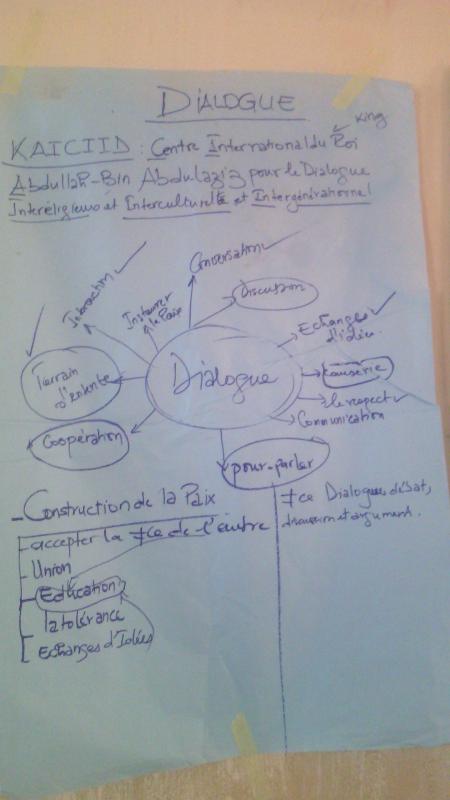 DIALOGUE
King
KAICIID : Centre International du Roi
Abdullah-Bin Abdulaziz pour le Dialogue
Interéligieux et Interculturelle et Intergénérationnel
Conversation
Interaction
Instaurer
la Paix
Discussion
Echanges
d'idées
Terrain
d'entente
Dialogue
Causerie
le respect
Communication
Coopération
pour-parler
- Construction de la Paix
- accepter la ≠ce de l'autre
- Union
- Education
la tolérance
Echanges d'Idées
≠ce Dialogue, débat,
discussion et argument.